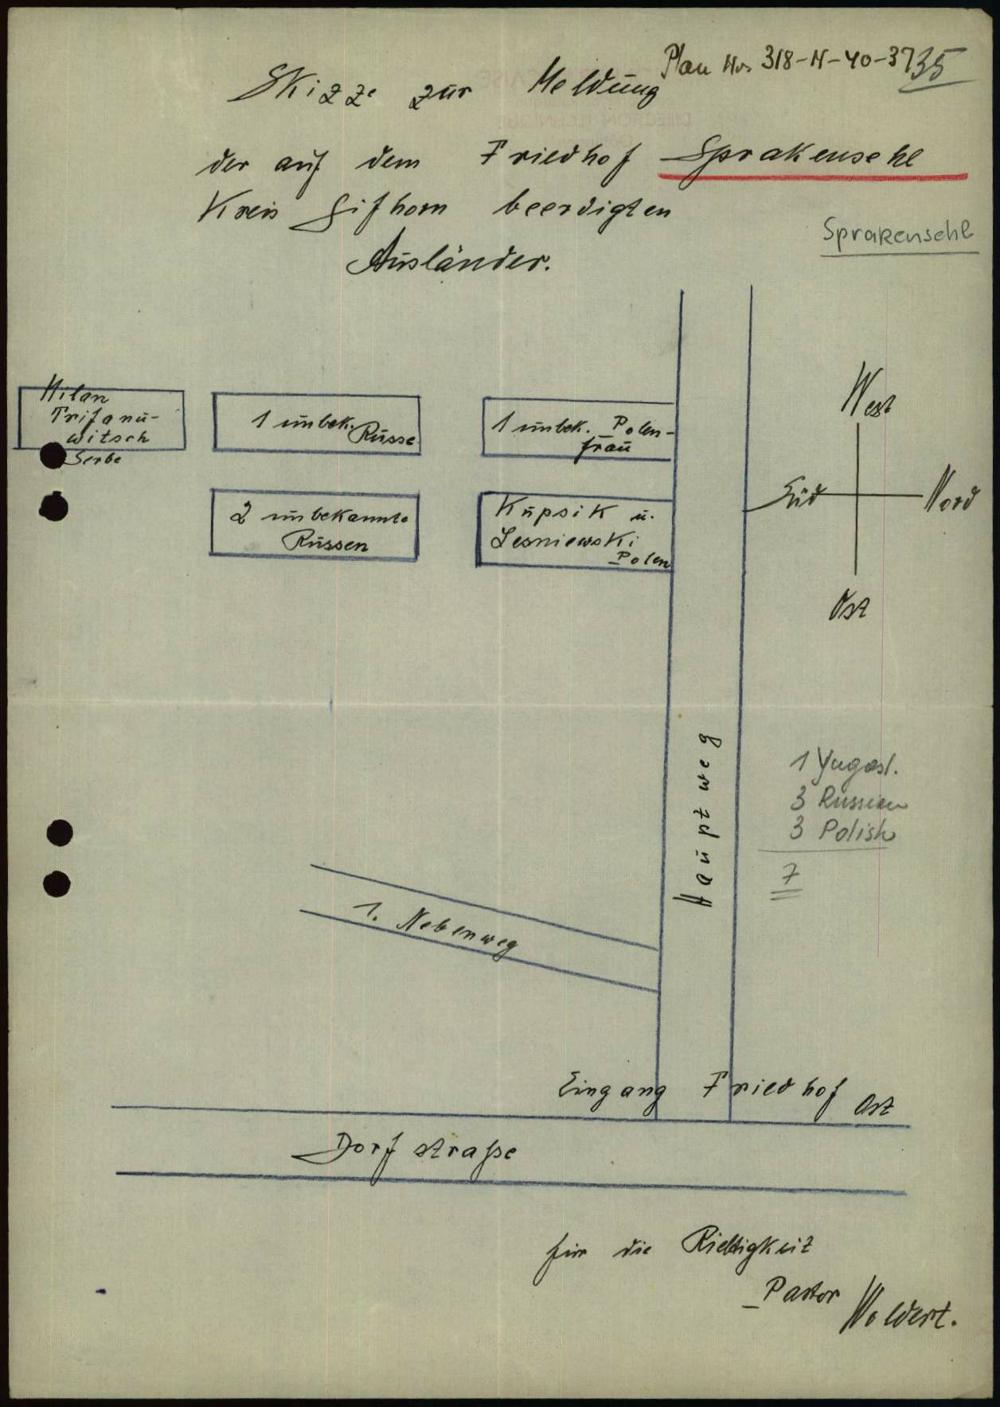 Plan No. 318-N-40-3735
Skizze zur Meldung
der auf dem Friedhof Sprakensehl
Kreis Gifhorn beerdigten
Ausländer.
Sprakensehl
Milan
Trifanu-
witsch
Serbe
1 unbek. Russe
1 unbek. Polen-
frau
2 unbekannte
Russen
Kupsik u.
Lesniewski
Polen
West
Süd
Nord
Ost
Hauptweg
1 Yugosl.
3 Russian
3 Polish
7
1. Nebenweg
Eingang Friedhof Ost
Dorfstraße
für die Richtigkeit
Pastor Woldert.